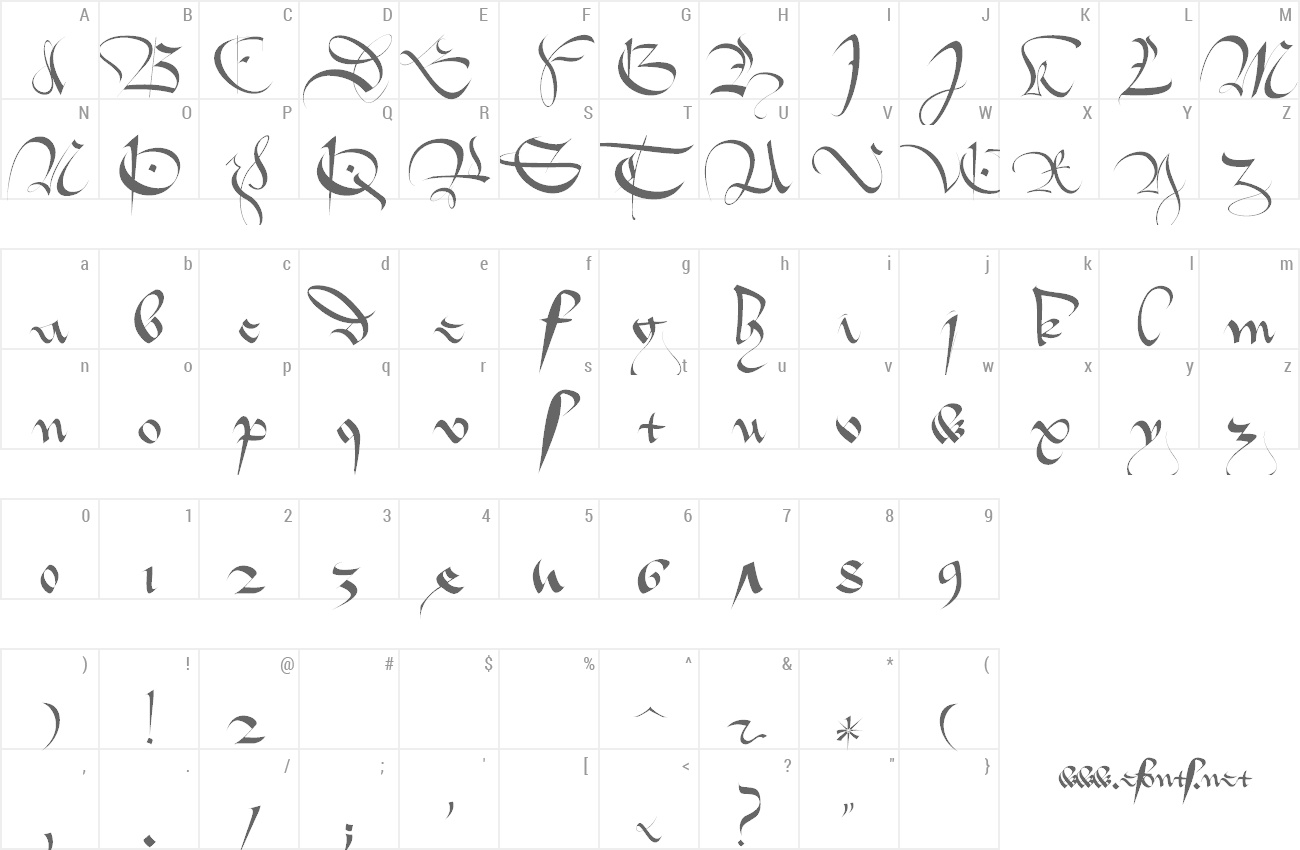 A B C D E F G H I J K L M
A B C D E F G H I J K L M
N O P Q R S T U V W X Y Z
N O P Q R S T U V W X Y Z
a b c d e f g h i j k l m
a b c d e f g h i j k l m
n o p q r s t u v w x y z
n o p q r s t u v w x y z
0 1 2 3 4 5 6 7 8 9
0 1 2 3 4 5 6 7 8 9
) ! @ # $ % ^ & * (
) ! 2 ^ * (
, . / ; ' [ < ? " }
www.efonts.net
, . / ; ' ? "